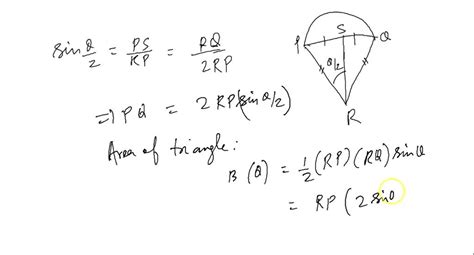 sin θ/2 = PS/RP = RQ/2RP
⇒ PQ = 2RP(sin θ/2)
Area of triangle:
B(θ) = 1/2 (RP)(RQ) sinθ
= RP (2 sinθ
P S Q
θ/2
R